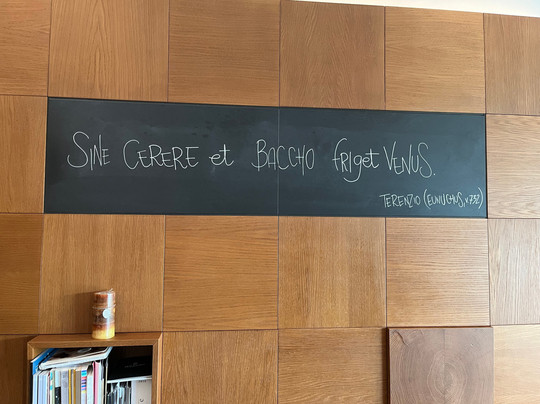 SINE CERERE et BACCHO friget VENUS.
TERENZIO (EUNUCHUS, v. 732)